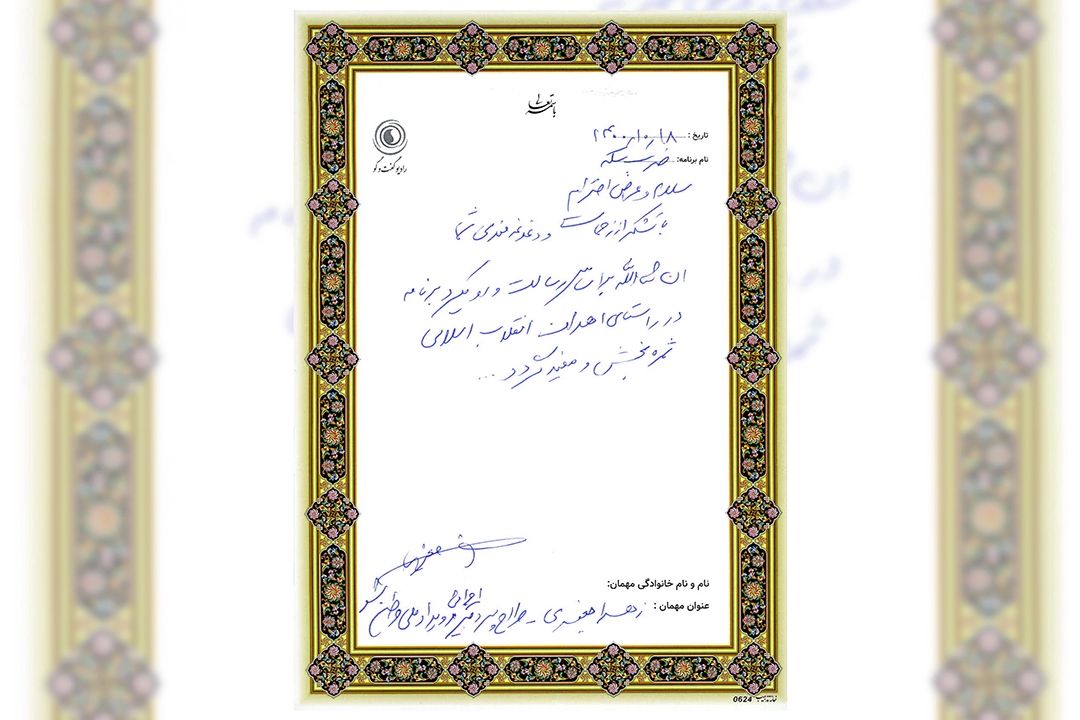 باسمه تعالی
رادیو گفت و گو
تاریخ: ۱۴۰۰/۵/۱۸
نام برنامه: ضرب سکه
سلام و عرض احترام
با تشکر از زحمات و دغدغه مندی شما
ان شاالله براساس رسالت و رویکرد برنامه
در راستای اهداف انقلاب اسلامی
ثمره بخش و مفید گردد ...
نام و نام خانوادگی مهمان:
عنوان مهمان: زهرا جعفری - طراح و سردبیر اجرایی رویداد ملی
0624